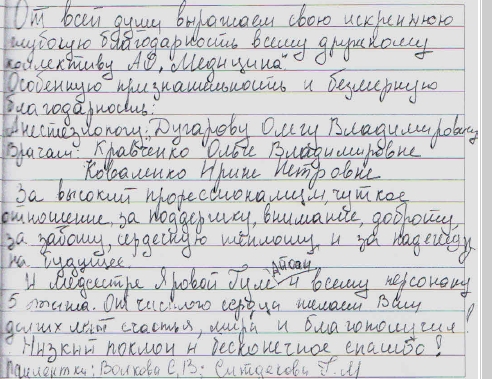 От всей души выражаем свою искреннюю
глубокую благодарность всему дружному
коллективу АО "Медицина".
Особенную признательность и безмерную
благодарность:
Анестезиологу: Дугарову Олегу Владимировичу
Врачам: Кравченко Ольге Владимировне
Коваленко Ирине Петровне
За высокий профессионализм, чуткое
отношение, за поддержку, внимание, доброту,
за заботу, сердечную теплоту и за надежду
на будущее.
И медсестре Яровой и всему персоналу
5 От чистого сердца желаем Вам
долгих лет счастья, мира и благополучия!
Низкий поклон и бесконечное спасибо!
Пациентки: Волкова С.В; Г.М